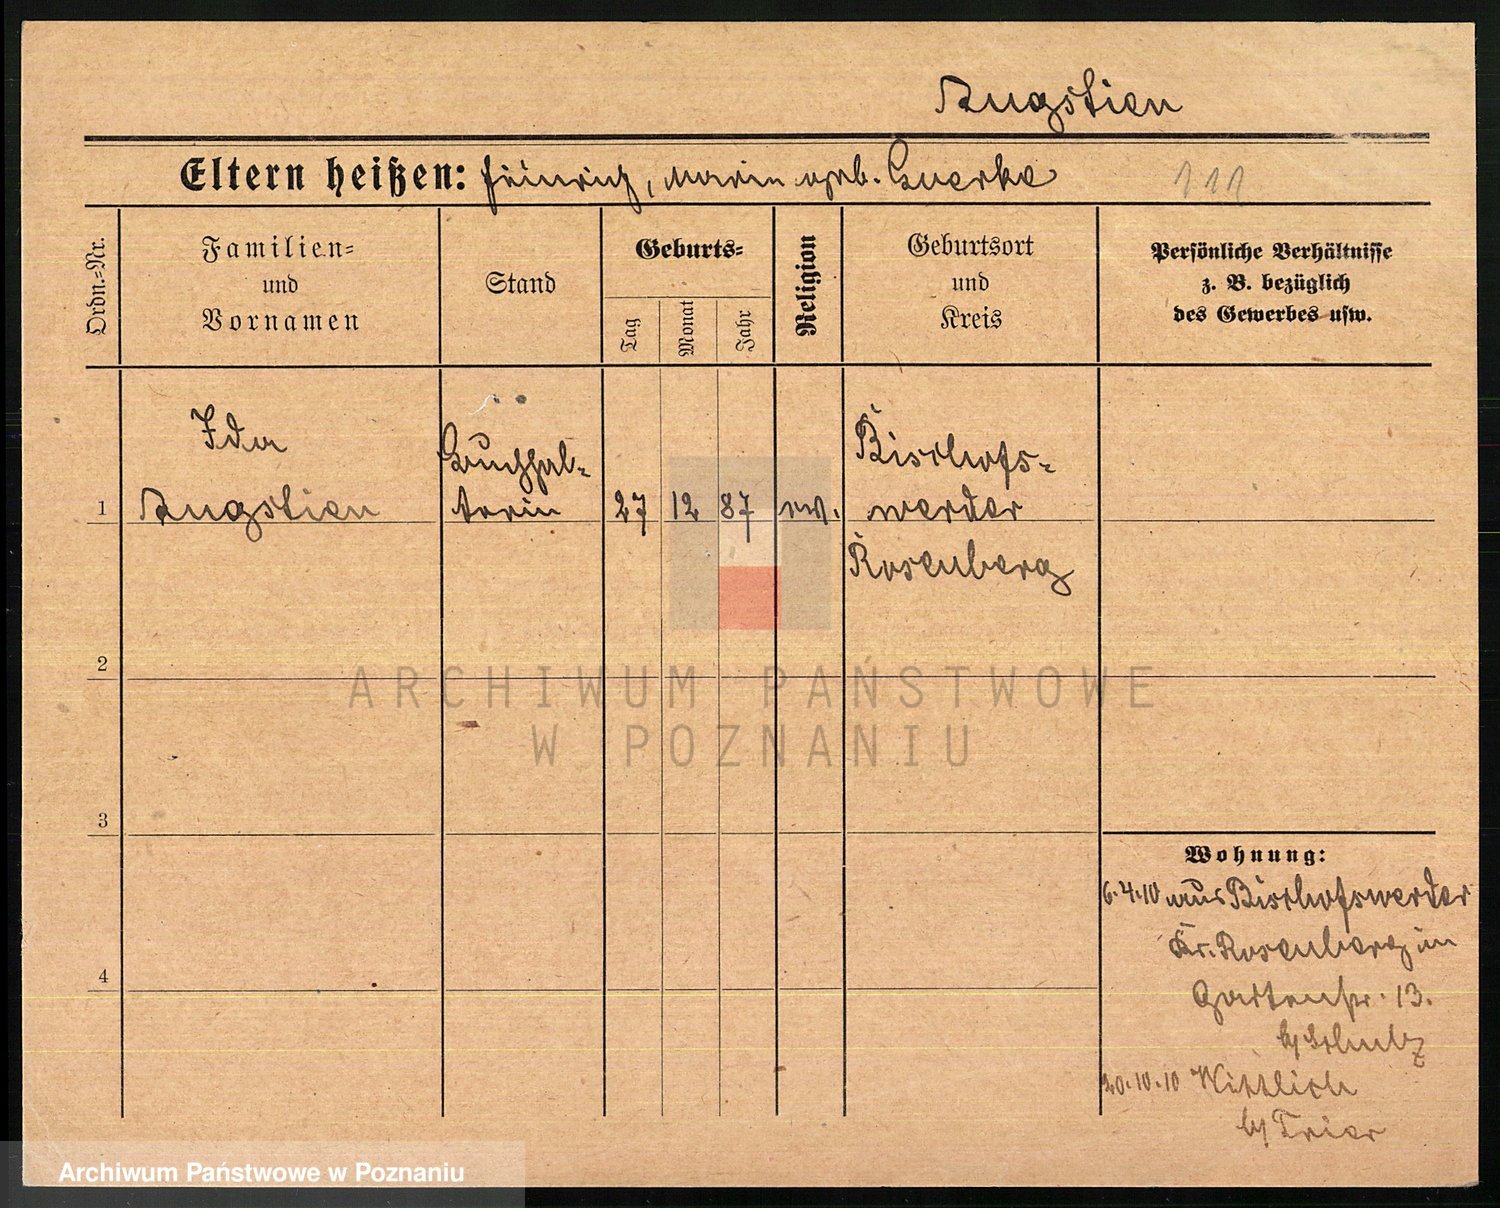 Augstien
Eltern heißen: Heinrich, Marie geb. Guerke
111
Ordn.=Nr.
Familien=
und
Vornamen
Stand
Geburts=
Tag
Monat
Jahr
Religion
Geburtsort
und
Kreis
Persönliche Verhältnisse
z. B. bezüglich
des Gewerbes usw.
1
Ida
Augstien
Buchhal-
terin
27
12
87
ev.
Bischofs-
werder
Rosenberg
2
3
4
Wohnung:
6.4.10 aus Bischofswerder
Kr. Rosenberg in
Gartenstr. 13.
b/ Schulz
20.10.10 Wittlich
b/ Trier
ARCHIWUM PAŃSTWOWE
W POZNANIU
Archiwum Państwowe w Poznaniu